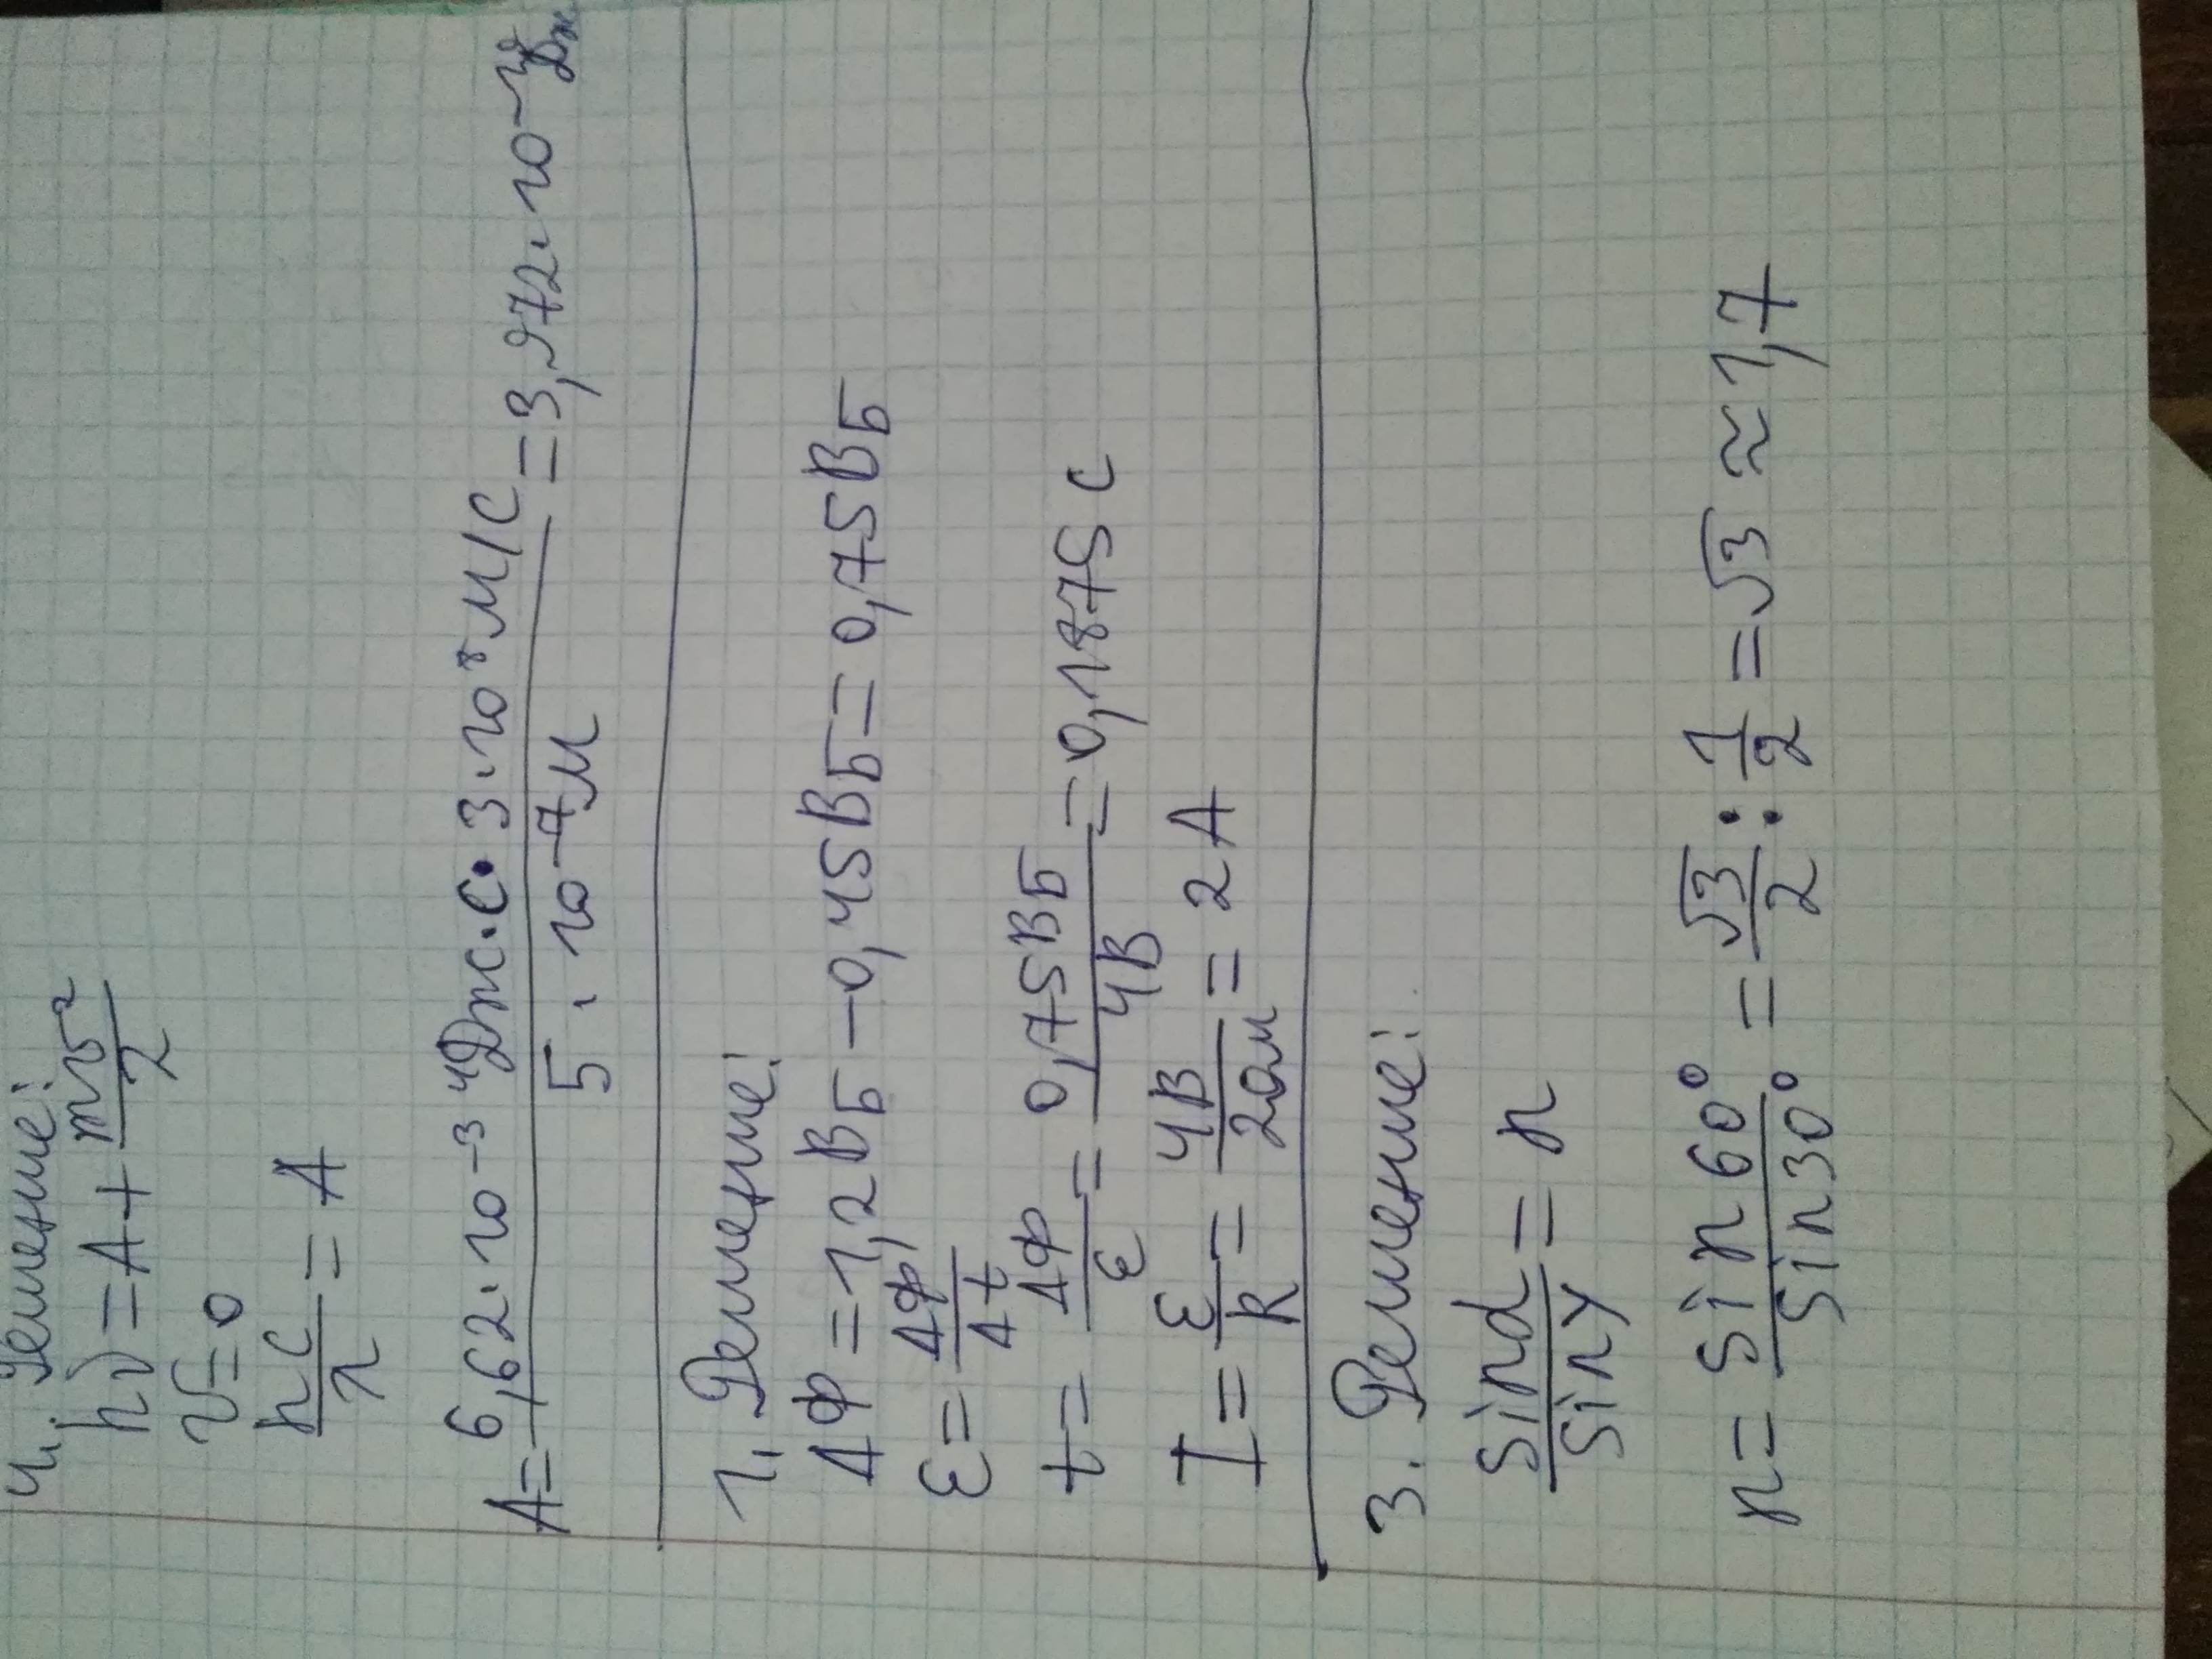 4. Решение:
hν = A + mv²/2
v = 0
hc/λ = A
A = 6,62·10⁻³⁴ Дж·с·3·10⁸ м/с / 5·10⁻⁷ м = 3,972·10 Дж
1. Решение:
ΔΦ = 1,2 Вб − 0,45 Вб = 0,75 Вб
ε = ΔΦ/Δt
t = ΔΦ/ε = 0,75 Вб/4В = 0,1875 с
I = ε/R = 4В/2Ом = 2А
3. Решение:
sinα/sinγ = n
n = sin60°/sin30° = √3/2 : 1/2 = √3 ≈ 1,7